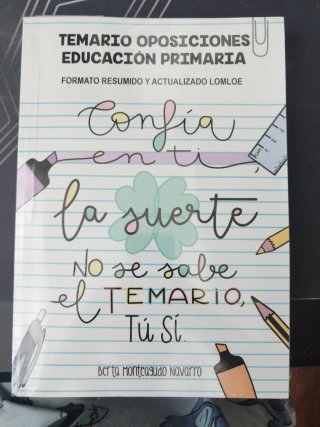 TEMARIO OPOSICIONES
EDUCACIÓN PRIMARIA
FORMATO RESUMIDO Y ACTUALIZADO LOMLOE
Confía
en ti,
la suerte
NO se sabe
el TEMARIO,
TÚ SÍ.
Berta Monteagudo Navarro